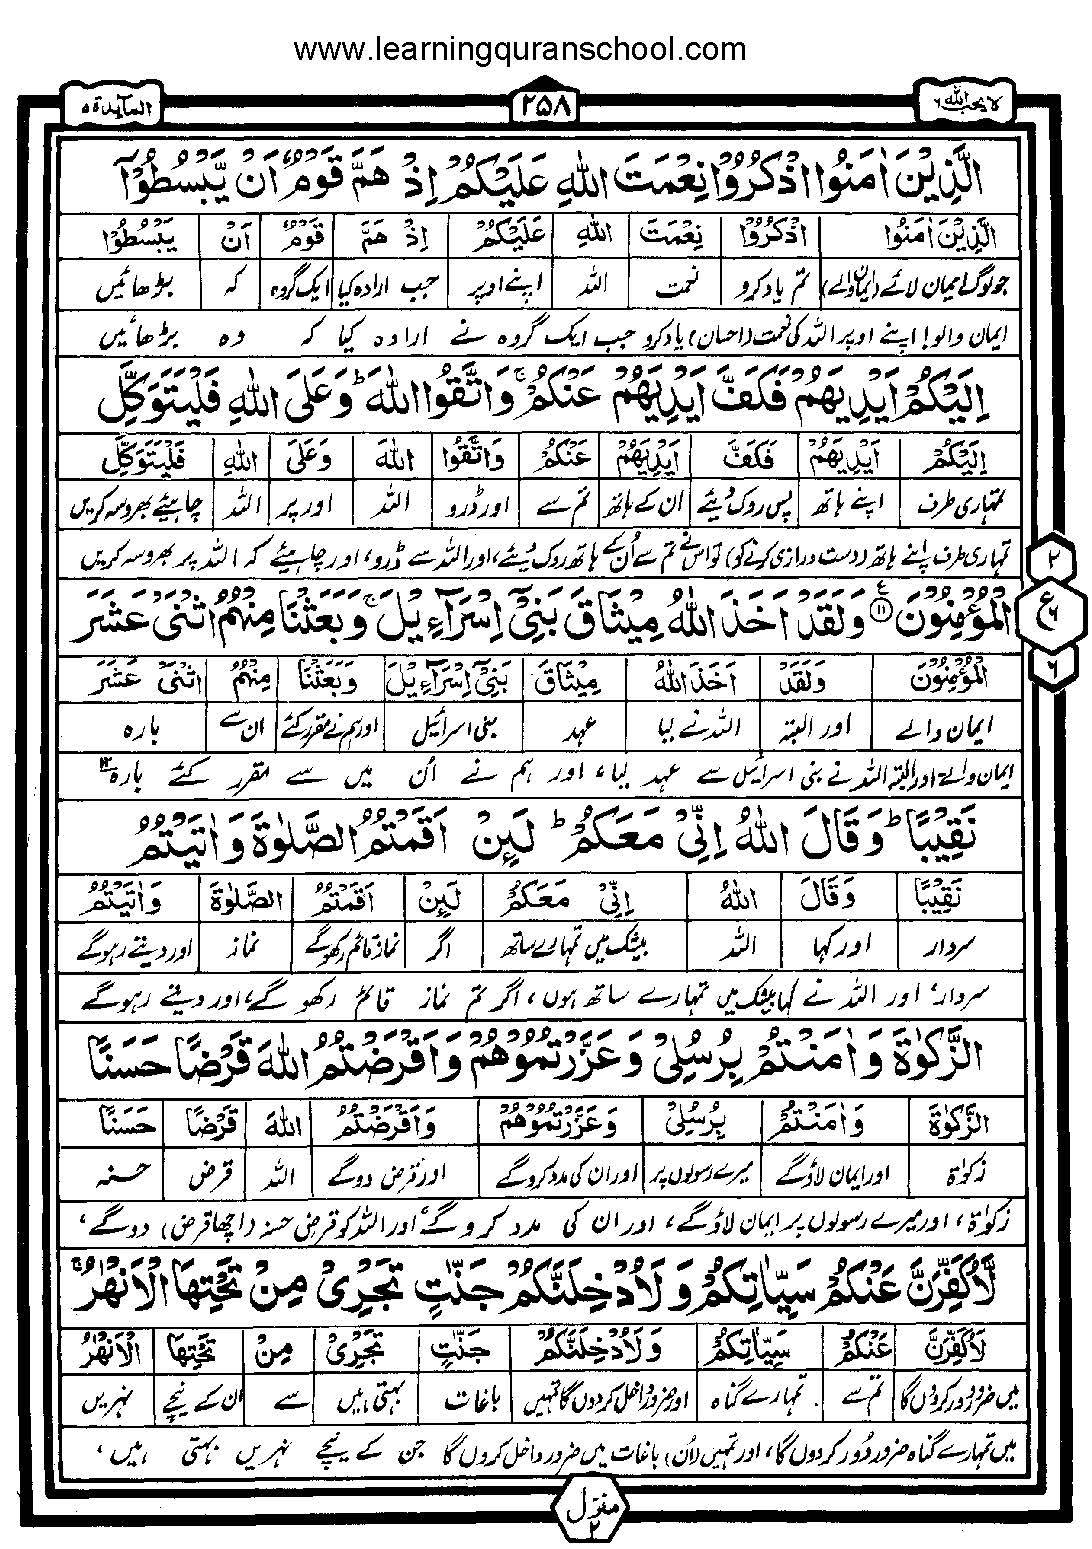 www.learningquranschool.com
لا یحب اللہ ٦ ۲۵۸ المآئدة ٥
الَّذِيْنَ اٰمَنُوا اذْكُرُوْا نِعْمَتَ اللّٰهِ عَلَيْكُمْ اِذْ هَمَّ قَوْمٌ اَنْ يَّبْسُطُوْۤا
الَّذِيْنَ اٰمَنُوا اذْكُرُوْا نِعْمَتَ اللّٰهِ عَلَيْكُمْ اِذْ هَمَّ قَوْمٌ اَنْ يَّبْسُطُوْۤا
جو لوگ ایمان لائے (ایمان والے) تم یاد کرو نعمت اللہ اپنے اوپر جب ارادہ کیا ایک گروہ کہ بڑھائیں
ایمان والو! اپنے اوپر اللہ کی نعمت (احسان) یاد کرو جب ایک گروہ نے ارادہ کیا کہ وہ بڑھائیں
اِلَيْكُمْ اَيْدِيَهُمْ فَكَفَّ اَيْدِيَهُمْ عَنْكُمْ ۚ وَاتَّقُوا اللّٰهَ ؕ وَعَلَى اللّٰهِ فَلْيَتَوَكَّلِ
اِلَيْكُمْ اَيْدِيَهُمْ فَكَفَّ اَيْدِيَهُمْ عَنْكُمْ وَاتَّقُوا اللّٰهَ وَعَلَى اللّٰهِ فَلْيَتَوَكَّلِ
تمہاری طرف اپنے ہاتھ پس روک دیئے ان کے ہاتھ تم سے اور ڈرو اللہ اور پر اللہ چاہیئے بھروسہ کریں
تمہاری طرف اپنے ہاتھ (دست درازی کرنے کو) تو اس نے تم سے اُن کے ہاتھ روک دیئے، اور اللہ سے ڈرو، اور چاہیئے کہ اللہ پر بھروسہ کریں
الْمُؤْمِنُوْنَ ۱۱ ع وَلَقَدْ اَخَذَ اللّٰهُ مِيْثَاقَ بَنِيْۤ اِسْرَآءِيْلَ ۚ وَبَعَثْنَا مِنْهُمُ اثْنَيْ عَشَرَ
۲ ع ٦ ٦
الْمُؤْمِنُوْنَ وَلَقَدْ اَخَذَ اللّٰهُ مِيْثَاقَ بَنِيْۤ اِسْرَآءِيْلَ وَبَعَثْنَا مِنْهُمُ اثْنَيْ عَشَرَ
ایمان والے اور البتہ اللہ نے لیا عہد بنی اسرائیل اور ہم نے مقرر کئے ان سے بارہ
ایمان والے اور البتہ اللہ نے بنی اسرائیل سے عہد لیا، اور ہم نے اُن میں سے مقرر کئے بارہ ۱۲
نَقِيْبًا ؕ وَقَالَ اللّٰهُ اِنِّيْ مَعَكُمْ ؕ لَئِنْ اَقَمْتُمُ الصَّلٰوةَ وَاٰتَيْتُمُ
نَقِيْبًا وَقَالَ اللّٰهُ اِنِّيْ مَعَكُمْ لَئِنْ اَقَمْتُمُ الصَّلٰوةَ وَاٰتَيْتُمُ
سردار اور کہا اللہ بیشک میں تمہارے ساتھ اگر نماز قائم رکھو گے نماز اور دیتے رہو گے
سردار، اور اللہ نے کہا بیشک میں تمہارے ساتھ ہوں، اگر تم نماز قائم رکھو گے، اور دیتے رہو گے
الزَّكٰوةَ وَاٰمَنْتُمْ بِرُسُلِيْ وَعَزَّرْتُمُوْهُمْ وَاَقْرَضْتُمُ اللّٰهَ قَرْضًا حَسَنًا
الزَّكٰوةَ وَاٰمَنْتُمْ بِرُسُلِيْ وَعَزَّرْتُمُوْهُمْ وَاَقْرَضْتُمُ اللّٰهَ قَرْضًا حَسَنًا
زکوٰۃ اور ایمان لاؤ گے میرے رسولوں پر اور ان کی مدد کرو گے اور قرض دو گے اللہ قرض حسنہ
زکوٰۃ، اور میرے رسولوں پر ایمان لاؤ گے، اور ان کی مدد کرو گے، اور اللہ کو قرض حسنہ (اچھا قرض) دو گے،
لَّاُكَفِّرَنَّ عَنْكُمْ سَيِّاٰتِكُمْ وَلَاُدْخِلَنَّكُمْ جَنّٰتٍ تَجْرِيْ مِنْ تَحْتِهَا الْاَنْهٰرُ ۚ
لَاُكَفِّرَنَّ عَنْكُمْ سَيِّاٰتِكُمْ وَلَاُدْخِلَنَّكُمْ جَنّٰتٍ تَجْرِيْ مِنْ تَحْتِهَا الْاَنْهٰرُ
میں ضرور دور کروں گا تم سے تمہارے گناہ اور ضرور داخل کردوں گا تمہیں باغات بہتی ہیں سے ان کے نیچے نہریں
میں تمہارے گناہ ضرور دُور کر دوں گا، اور تمہیں (اُن) باغات میں ضرور داخل کروں گا جن کے نیچے نہریں بہتی ہیں،
منزل ۲